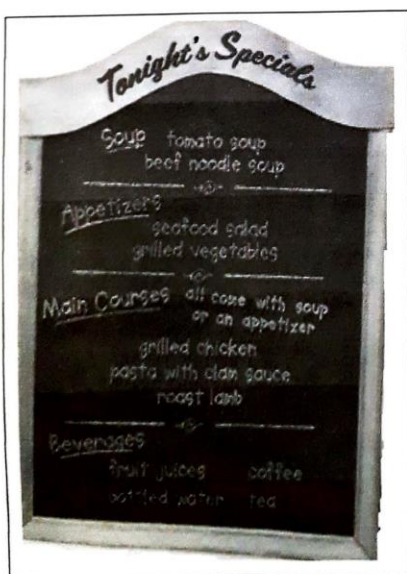 Tonight's Specials
Soup tomato soup
beef noodle soup
Appetizers
seafood salad
grilled vegetables
Main Courses all come with soup
or an appetizer
grilled chicken
pasta with clam sauce
roast lamb
Beverages
fruit juices coffee
bottled water tea